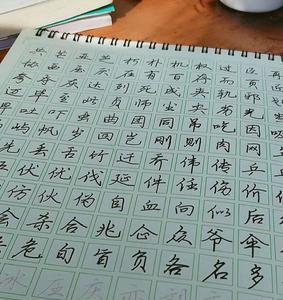 共芒亚芝朽朴机权过臣再
协西压厌在有百存而页
夸夺灰达列死成夹轨邪划
迈毕至此贞师尘尖劣光
早吐吓虫曲团同吊吃因吸
屿帆岁回岂刚则肉网年
先丢舌竹迁乔伟传乒乓
伍伏优伐延件任伤价
仿伙伪自血向似后
会杀合兆企众爷伞
危旬旨负各名多